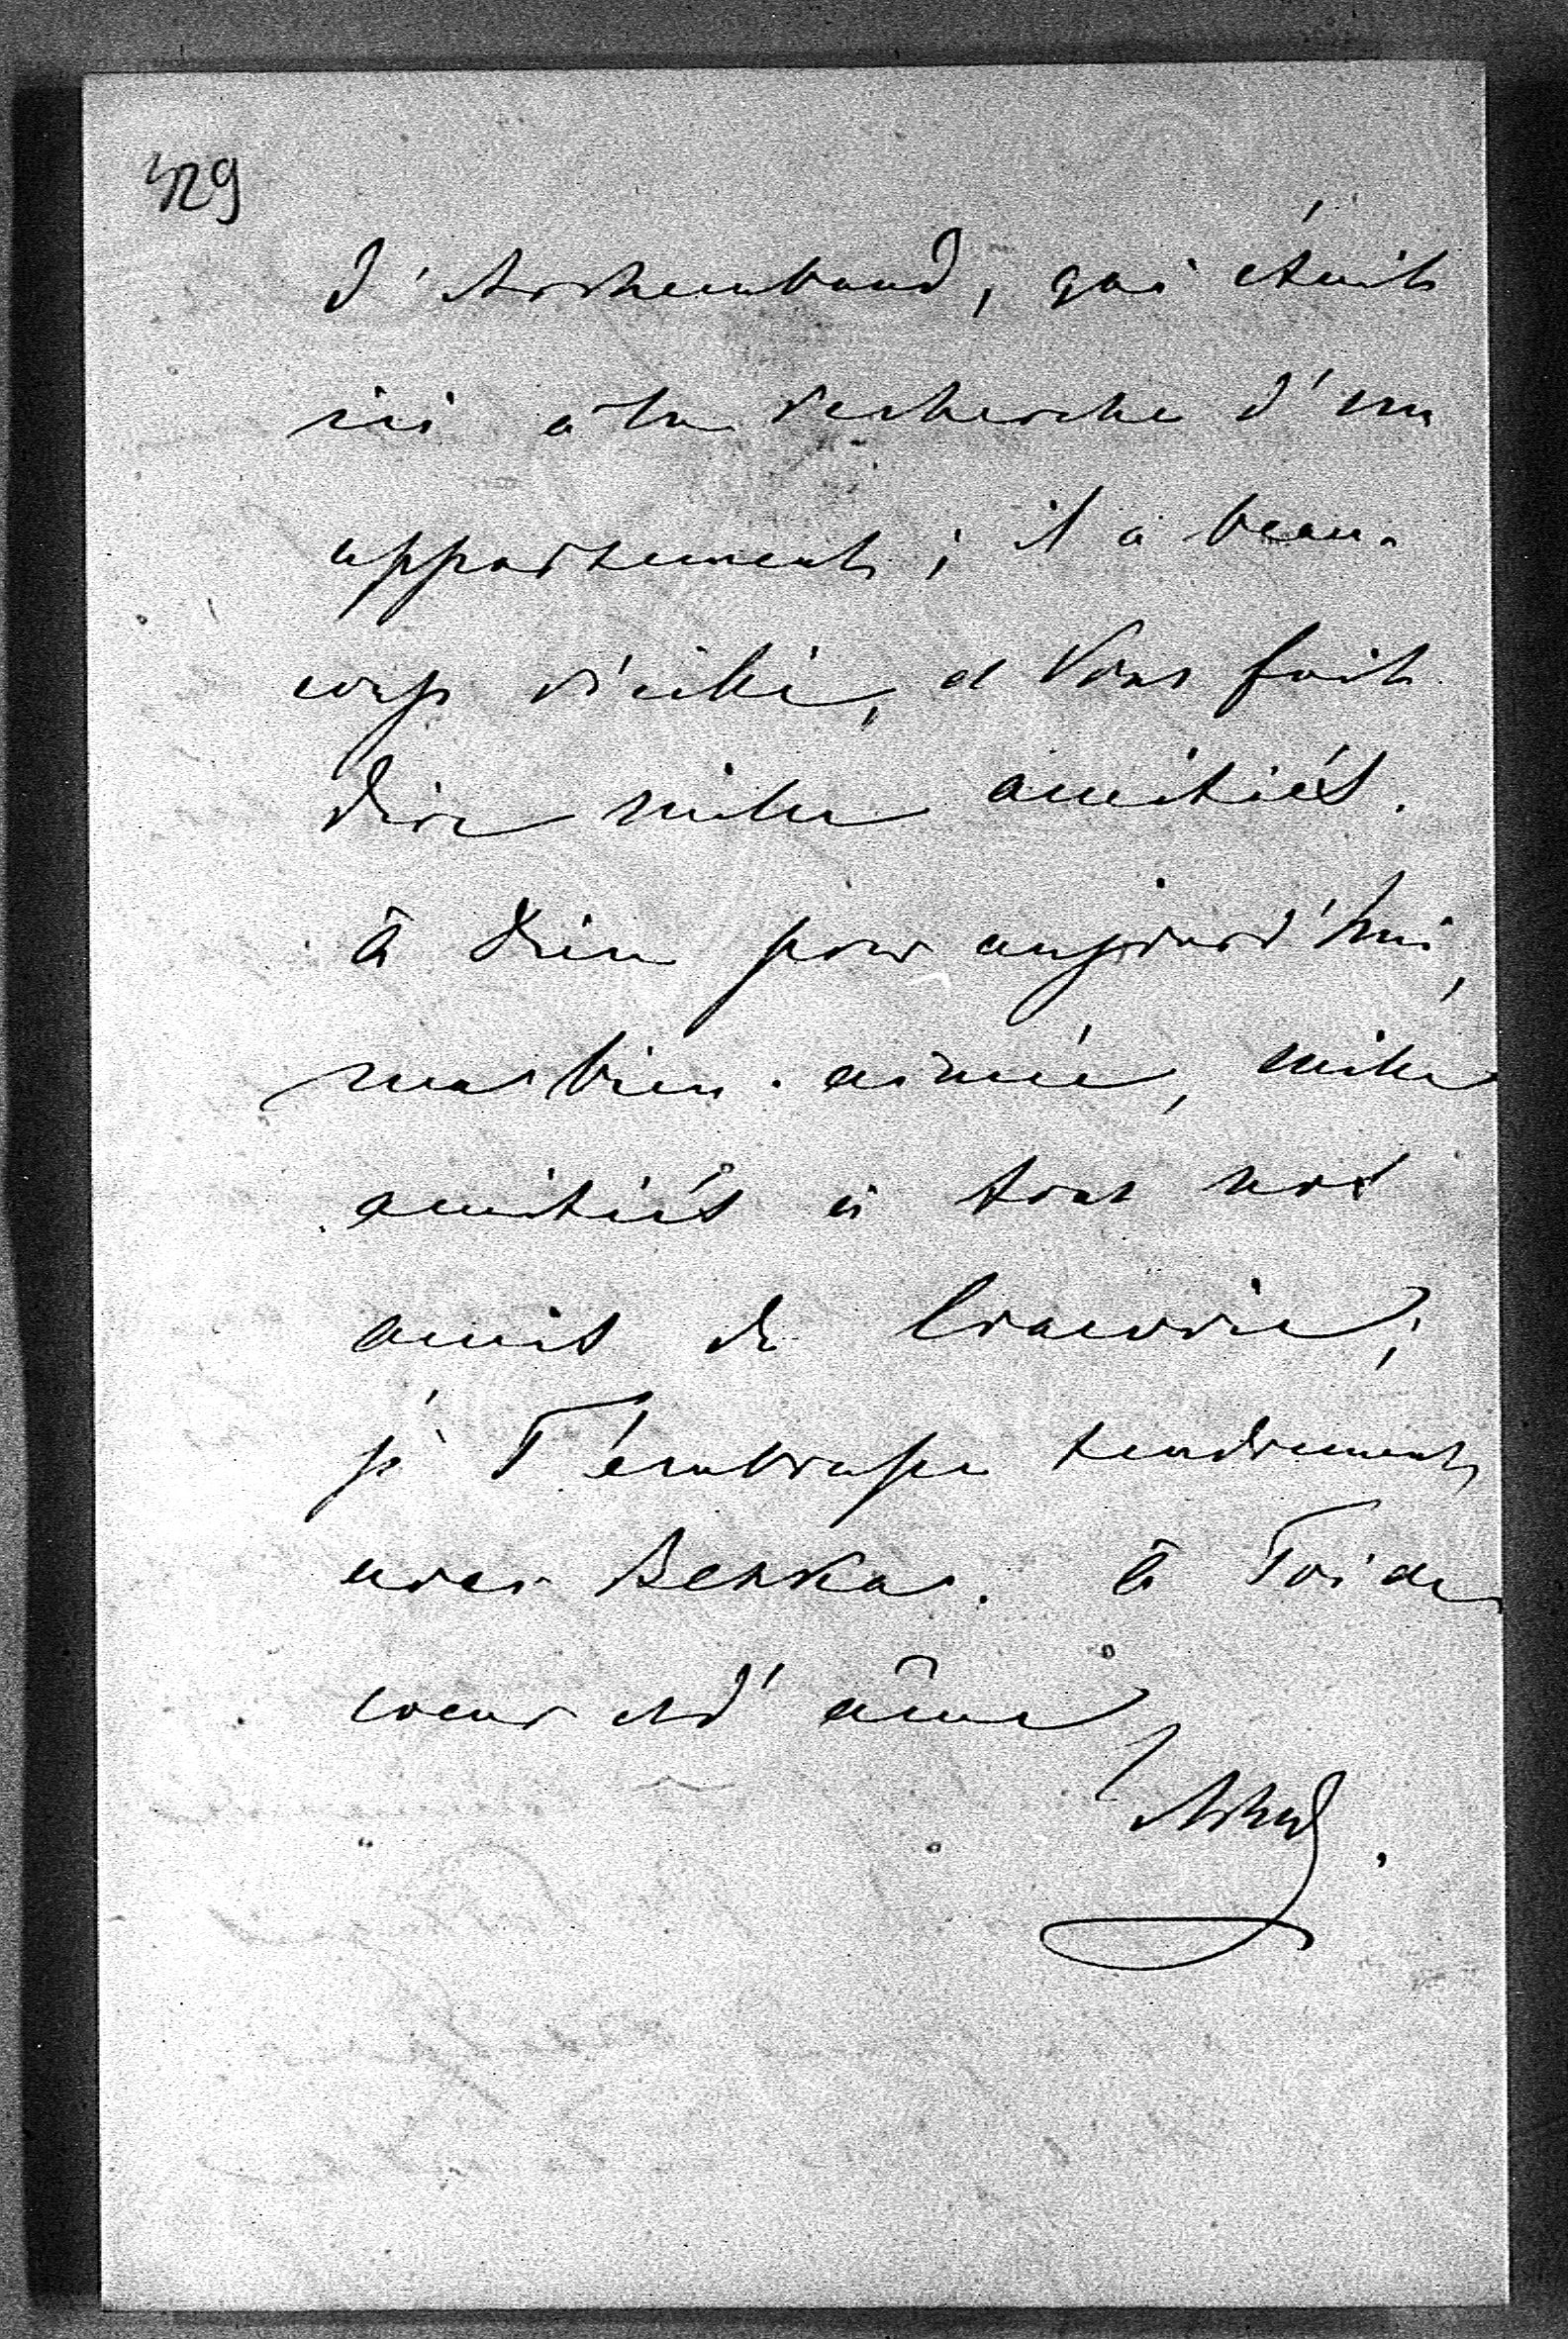 429
d'Archembaud, qui était
ici à la recherche d'un
appartement; il a beau-
coup vieilli, et Vous fait
dire mille amitiés.
à Dieu pour aujourd'hui,
ma bien-aimée, mille
amitiés à tous nos
amis de Cracovie;
je T'émbrasse tendrement
avec Bertka. à Toi de
coeur et d'âme